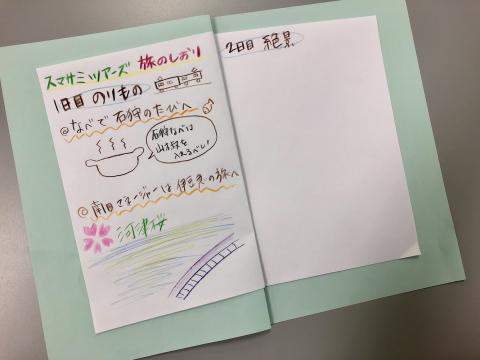 スマサミツアーズ 旅のしおり
1日目 のりもの
@なべで 石狩のたびへ
石狩なべは
山椒を
入れるべし!
@南日マネージャーは 伊豆急の旅へ
河津桜
2日目 絶景